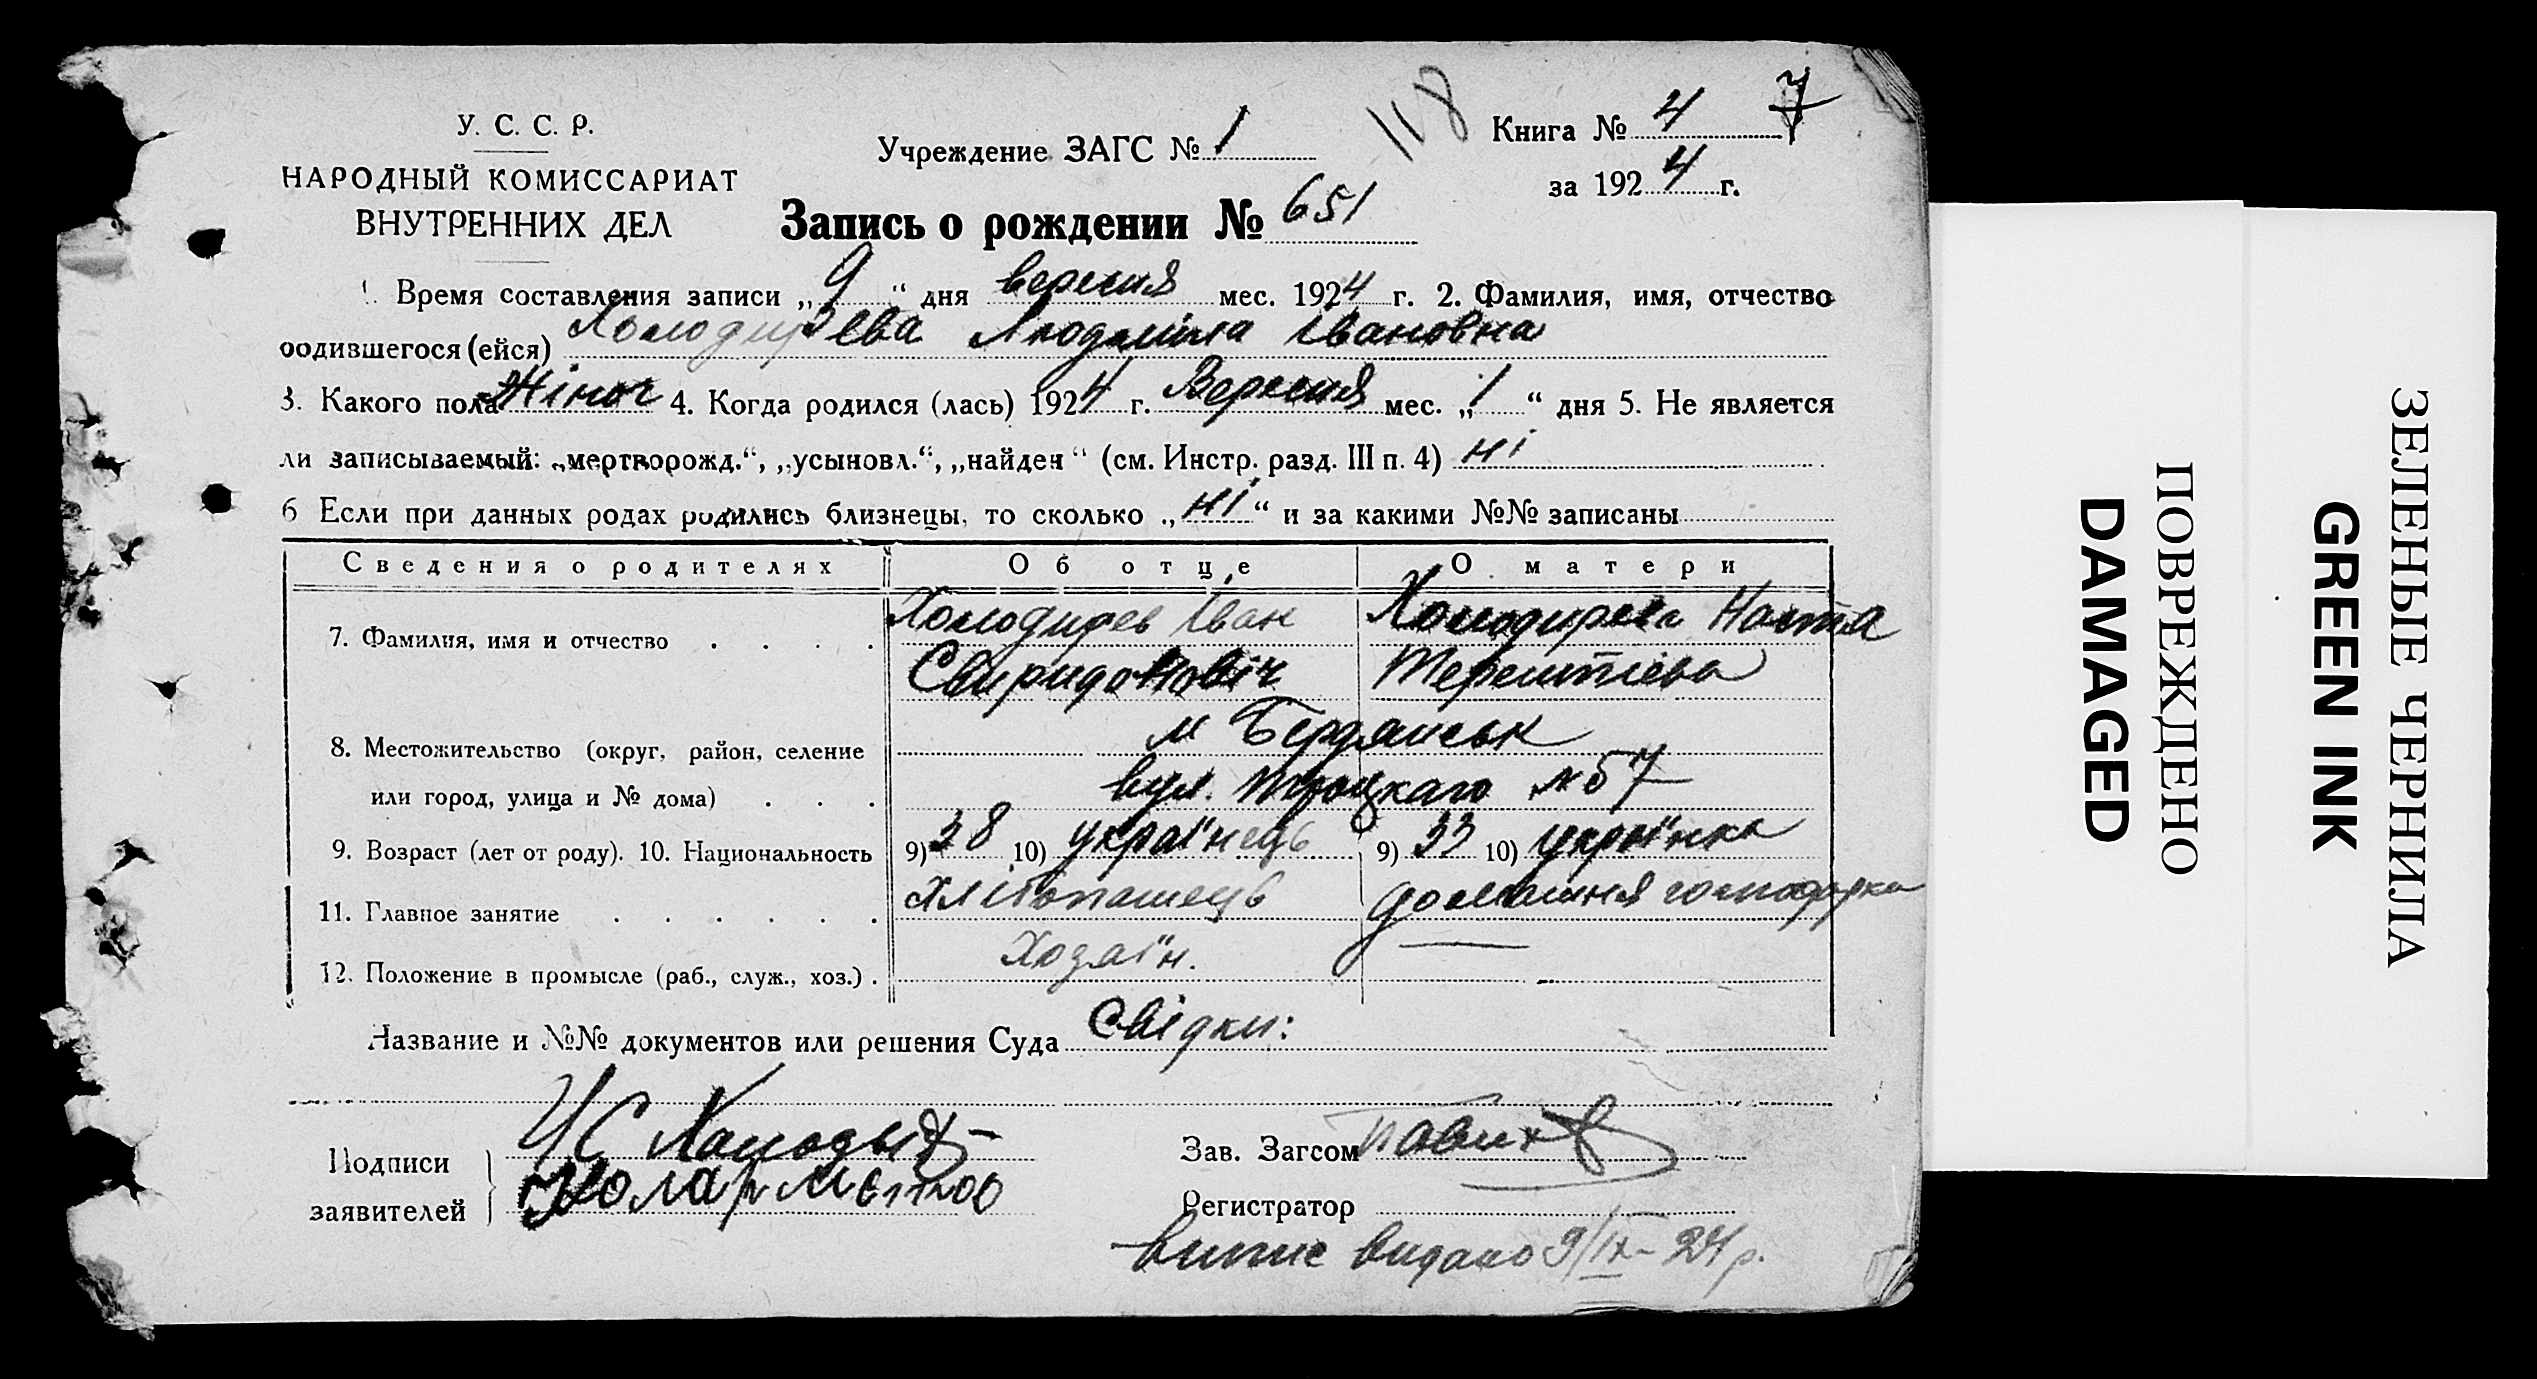 У. С. С. Р.
НАРОДНЫЙ КОМИССАРИАТ
ВНУТРЕННИХ ДЕЛ
Учреждение ЗАГС № 1
118
Книга № 4 7
за 1924 г.
Запись о рождении № 651
1. Время составления записи „9“ дня вересня мес. 1924 г. 2. Фамилия, имя, отчество
родившегося (ейся) Холодирева Людмила Івановна
3. Какого пола Жіноч 4. Когда родился (лась) 1924 г. Вересня мес. „1“ дня 5. Не является
ли записываемый: „мертворожд.“, „усыновл.“, „найден“ (см. Инстр. разд. III п. 4) ні
6 Если при данных родах родились близнецы, то сколько „ні“ и за какими №№ записаны
Сведения о родителях Об отце О матери
7. Фамилия, имя и отчество Холодирев Іван Холодирева Настя
Свиридоновіч Терентієва
8. Местожительство (округ, район, селение м Бердянськ
или город, улица и № дома) вул. Троцкаго № 57
9. Возраст (лет от роду). 10. Национальность 9) 38 10) українець 9) 33 10) українка
11. Главное занятие Хлібопашець домашня господарка
12. Положение в промысле (раб., служ., хоз.) Хозяїн.
Название и №№ документов или решения Суда Свідки:
Подписи
заявителей
И С Холоды
Зав. Загсом
Регистратор
Випис видано 9/IX-24 р.
ЗЕЛЕНЫЕ ЧЕРНИЛА
GREEN INK
ПОВРЕЖДЕНО
DAMAGED